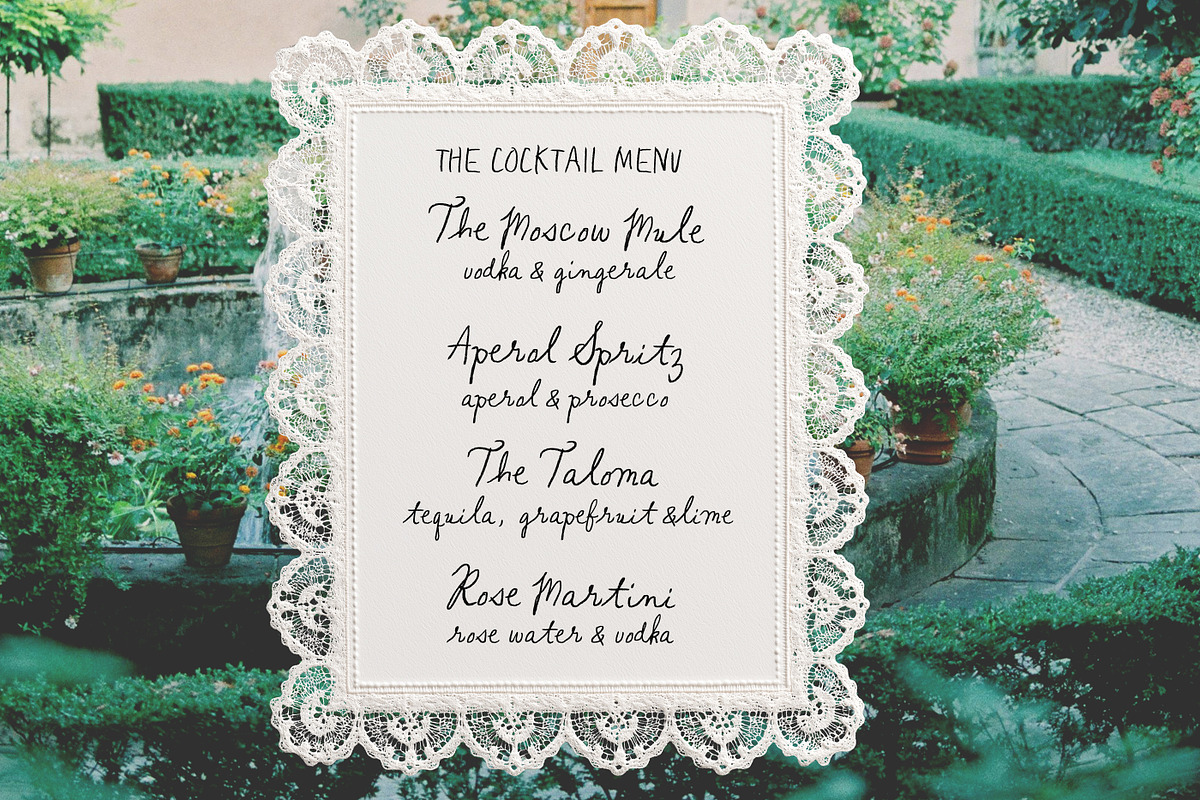 THE COCKTAIL MENU
The Moscow Mule
vodka & gingerale
Aperol Spritz
aperol & prosecco
The Taloma
tequila, grapefruit &lime
Rose Martini
rose water & vodka